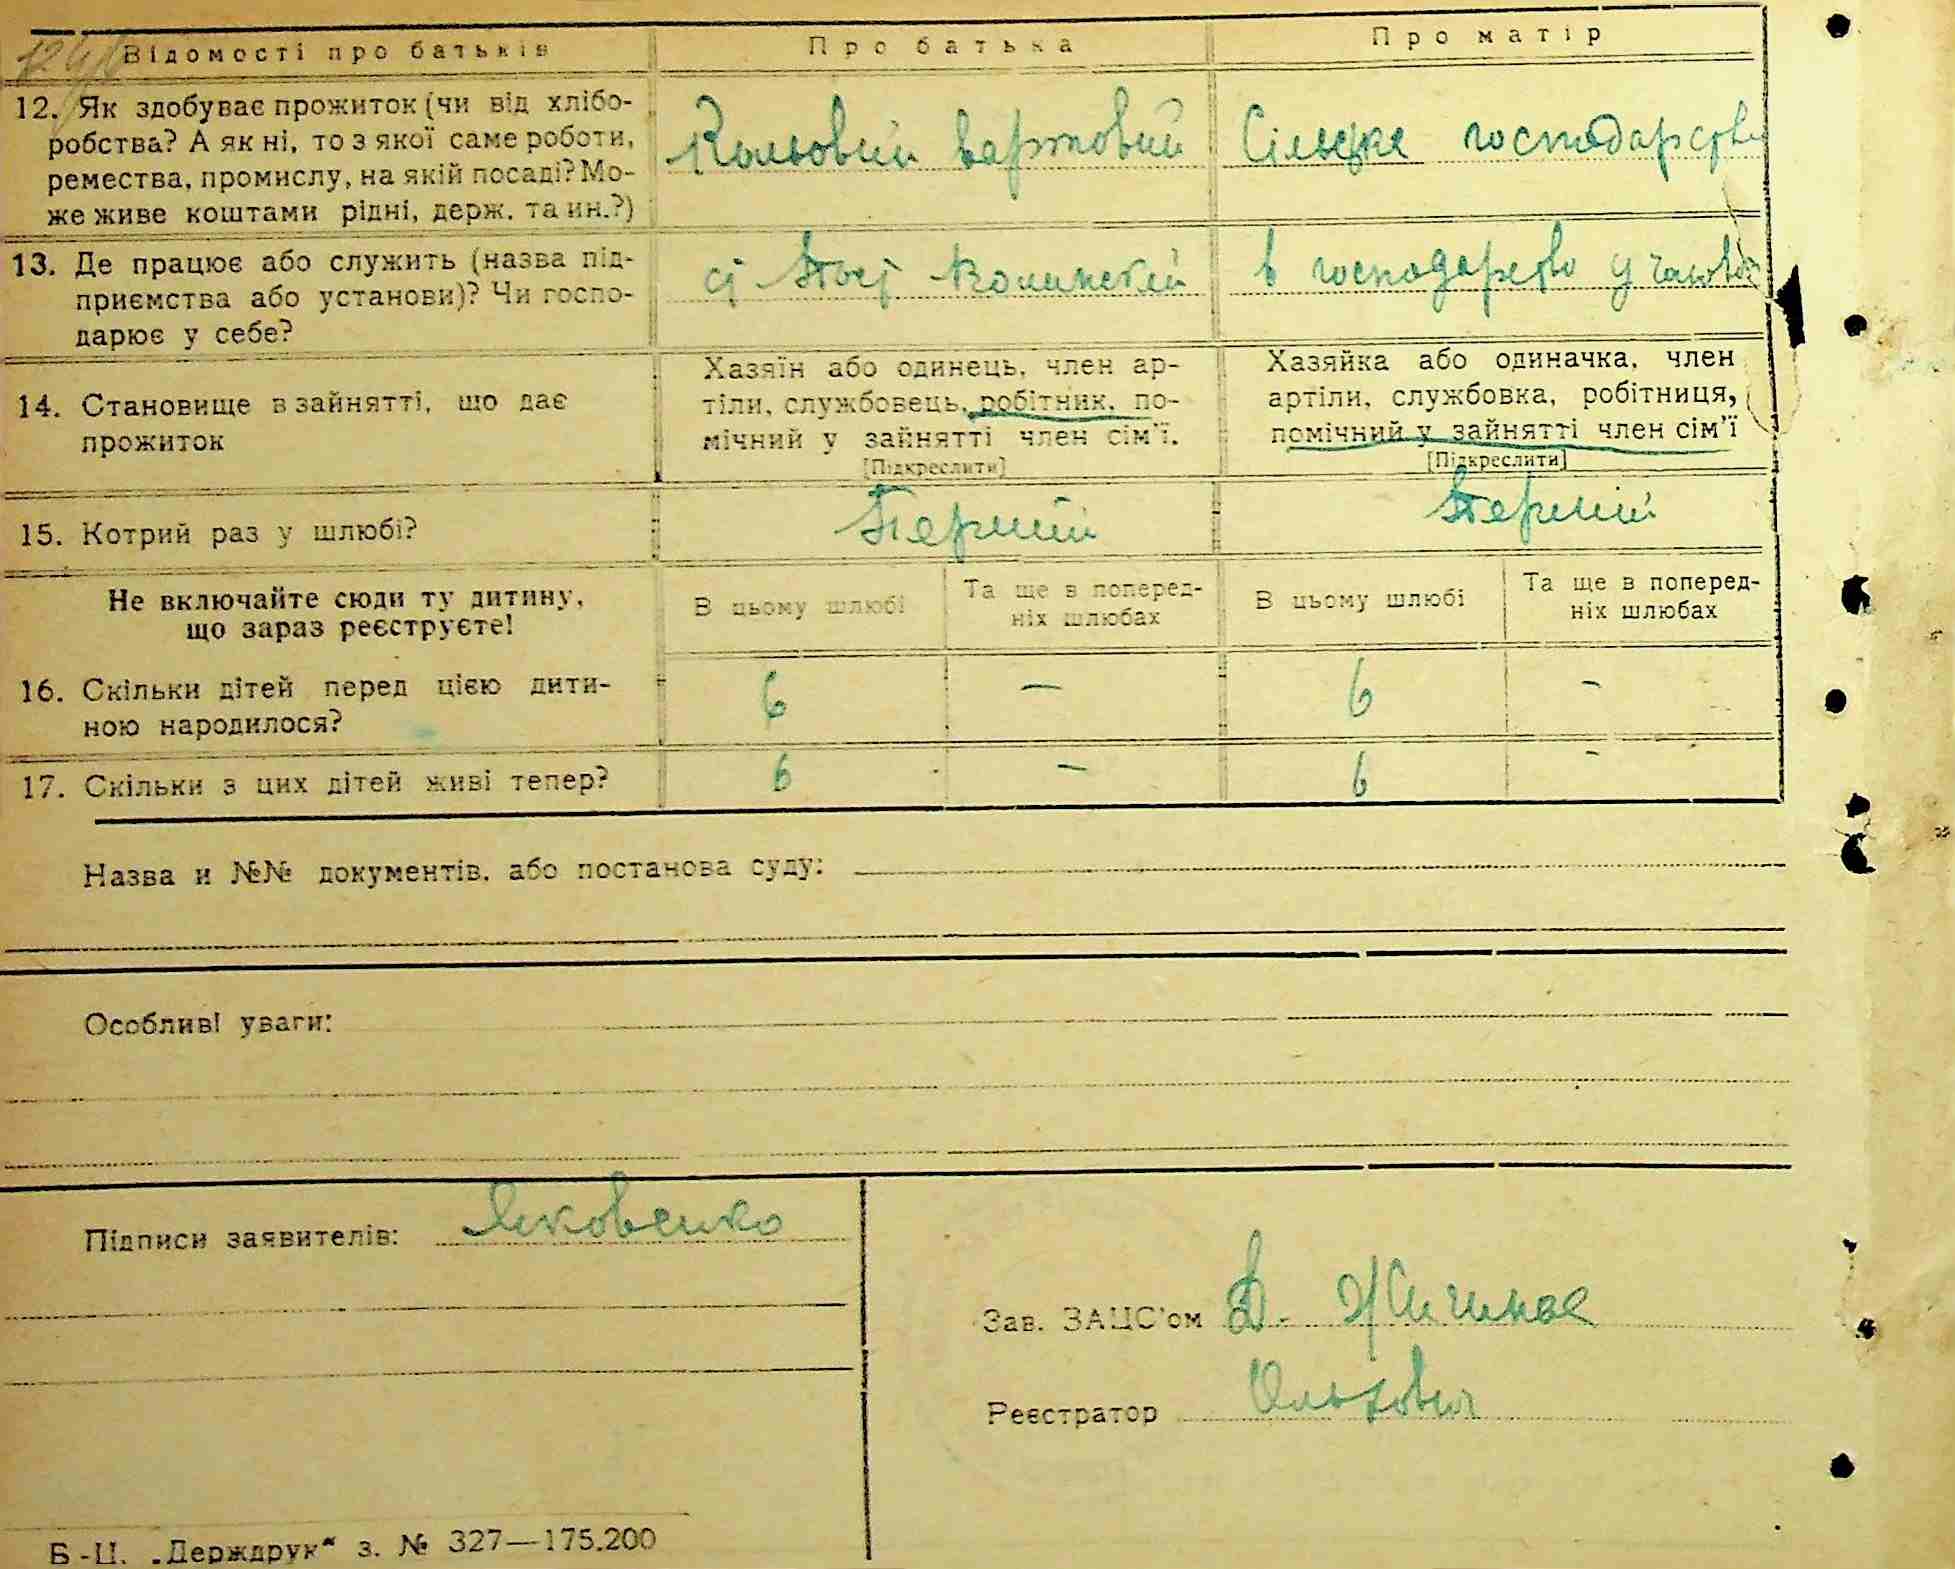 Відомості про батьків Про батька Про матір
12. Як здобуває прожиток (чи від хлібо-
робства? А як ні, то з якої саме роботи,
ремества, промислу, на якій посаді? Мо-
же живе коштами рідні, держ. та ин.?)
вартовий Сільське господарство
13. Де працює або служить (назва під-
приємства або установи)? Чи госпо-
дарює у себе?
в господарство у
14. Становище в зайнятті, що дає
прожиток
Хазяїн або одинець, член ар-
тіли, службовець, робітник, по-
мічний у зайнятті член сім'ї.
[Підкреслити]
Хазяйка або одиначка, член
артіли, службовка, робітниця,
помічний у зайнятті член сім'ї
[Підкреслити]
15. Котрий раз у шлюбі? Перший Перший
Не включайте сюди ту дитину,
що зараз реєструєте!
В цьому шлюбі
Та ще в поперед-
ніх шлюбах
В цьому шлюбі
Та ще в поперед-
ніх шлюбах
16. Скільки дітей перед цією дити-
ною народилося?
6 — 6 -
17. Скільки з цих дітей живі тепер? 6 — 6 -
Назва и №№ документів, або постанова суду:
Особливі уваги:
Підписи заявителів: Яковенко
Зав. ЗАЦС'ом
Реєстратор Ольхович
Б-Ц. „Держдрук“ з. № 327—175.200